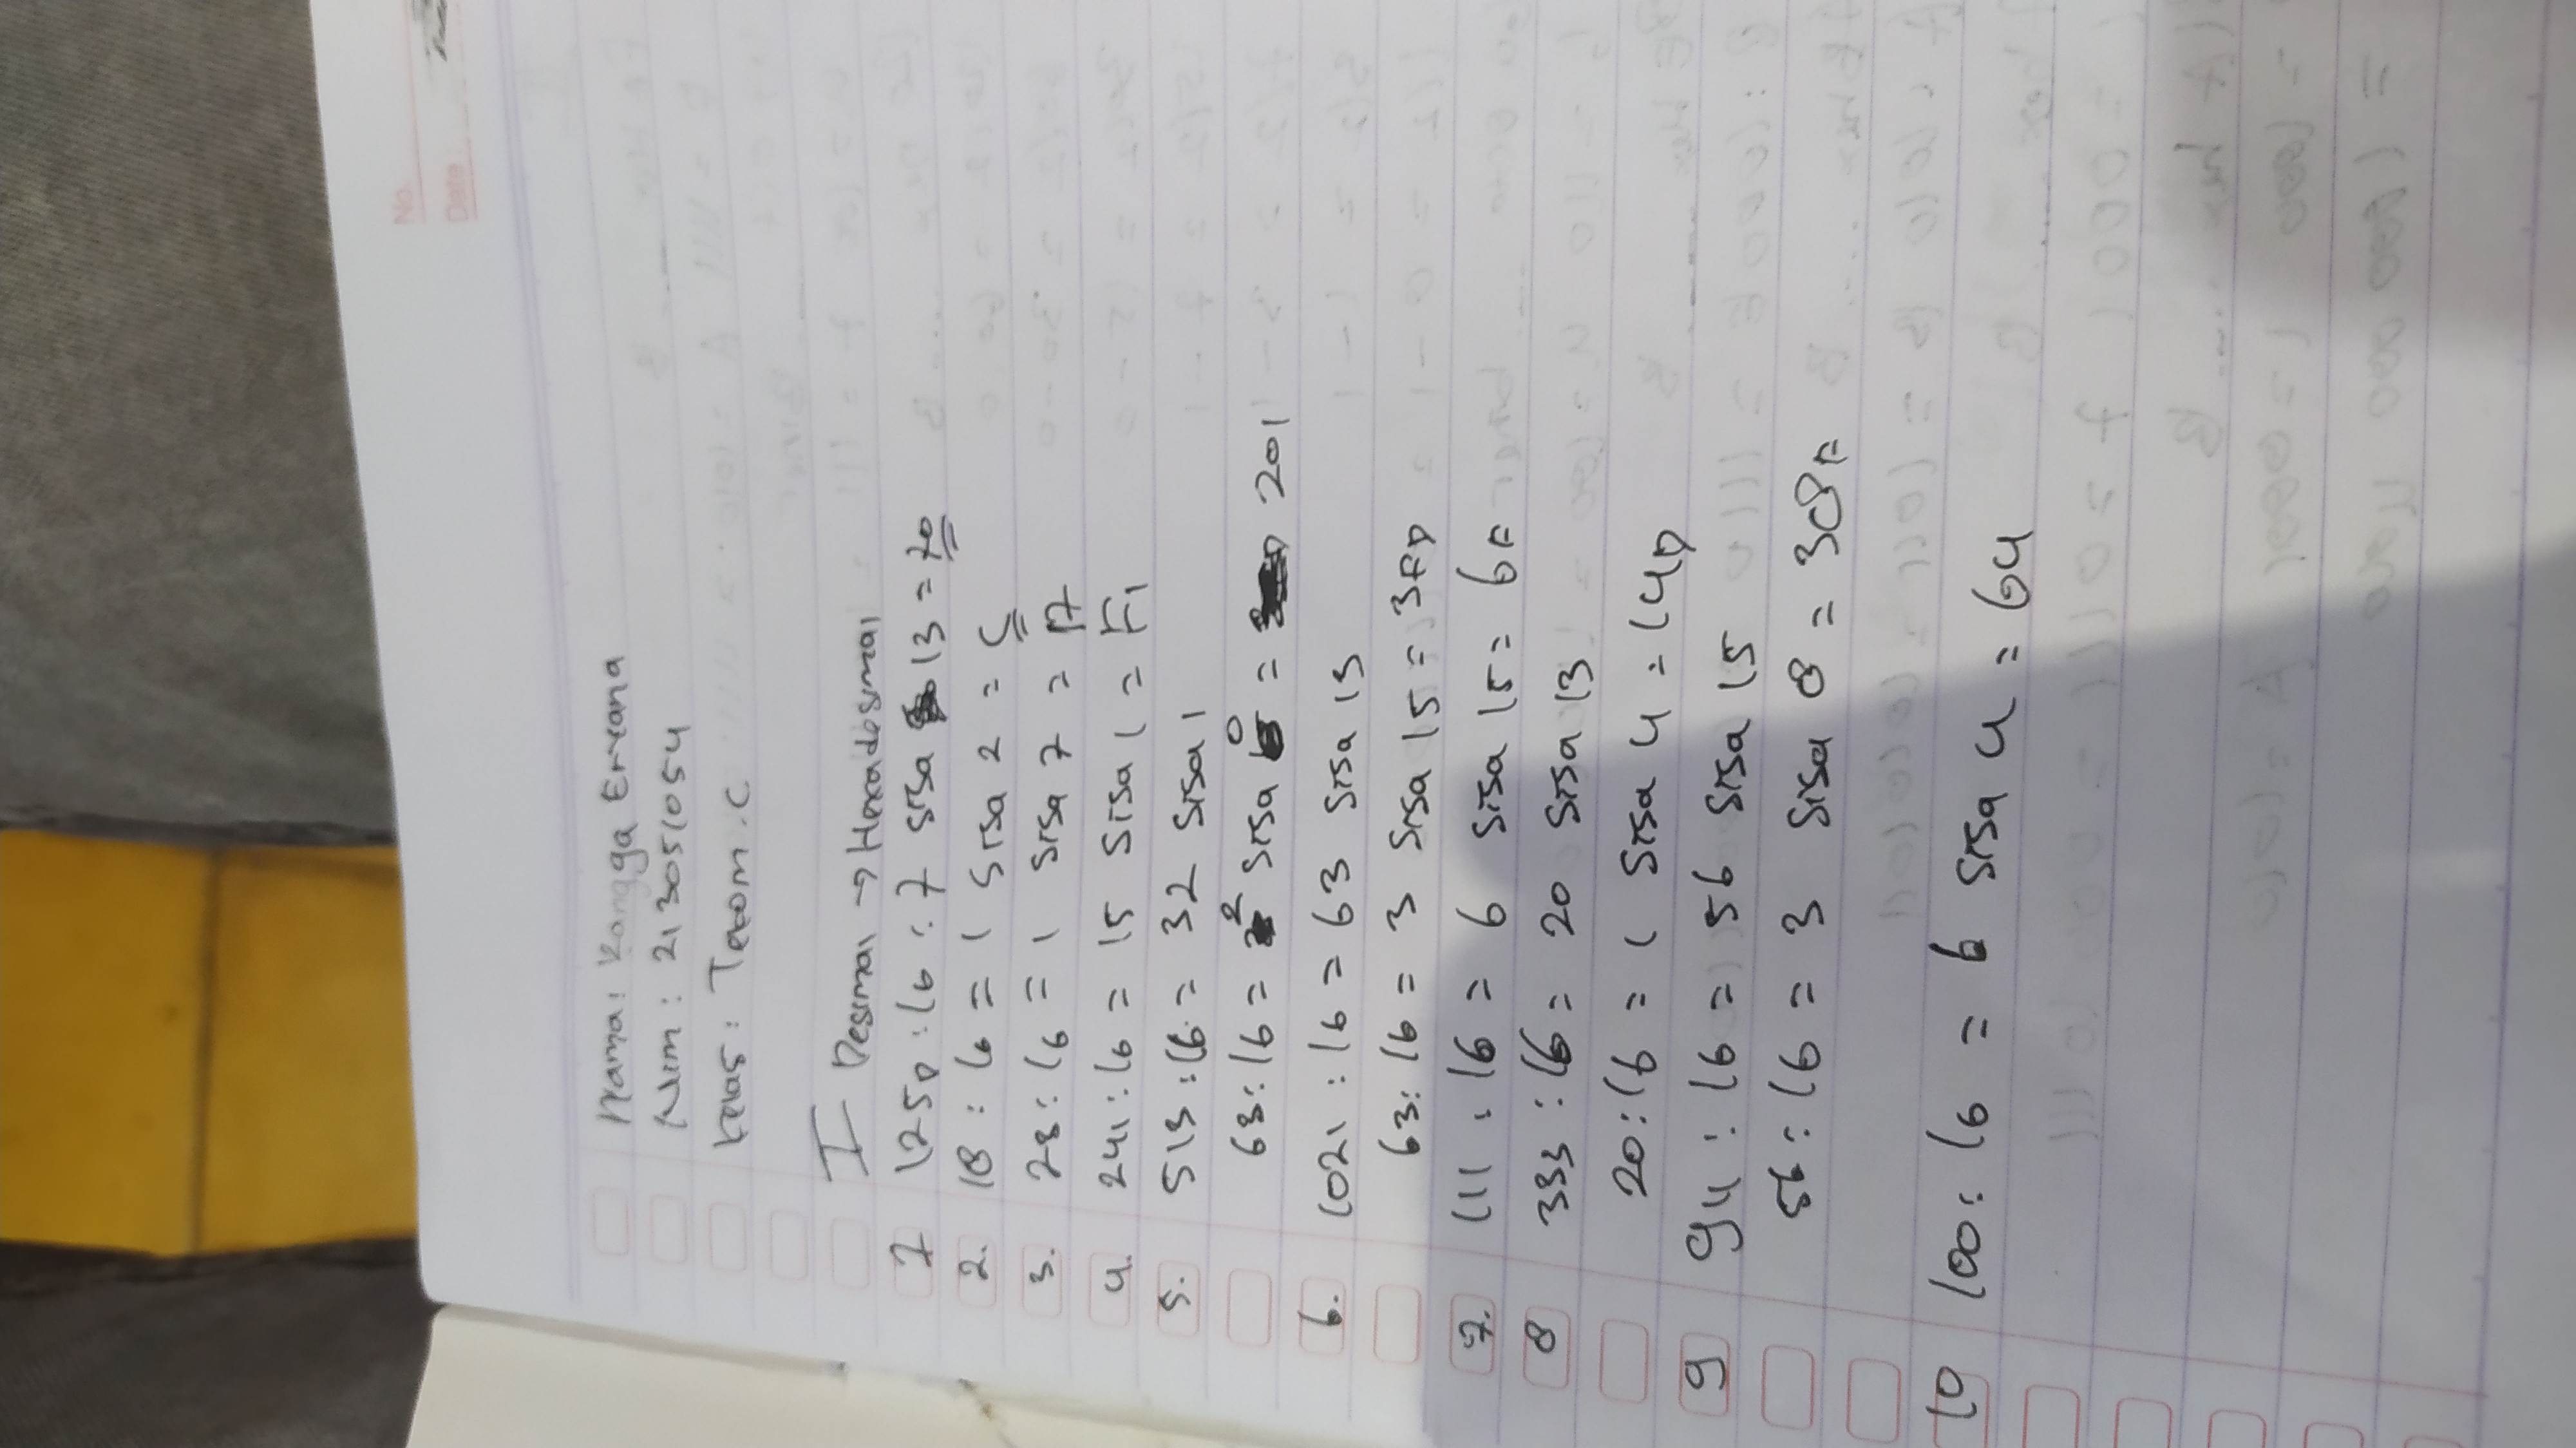 No.
Date
Nama : Rangga Ervana
Nim : 213051054
Kelas : Tekom . C
I Desimal → Hexadesimal
1 125 : 16 : 7 sisa 13 = 7D
2. 18 : 16 = 1 sisa 2 =
3. 23 : 16 = 1 sisa 7 = 17
4. 241 : 16 = 15 sisa 1 = F1
5. 513 : 16 = 32 sisa 1
63 : 16 = 2 sisa 0 = 201
6. 1021 : 16 = 63 sisa 13
63 : 16 = 3 sisa 15 = 3FD
7. 111 : 16 = 6 sisa 15 = 6F
8 333 : 16 = 20 sisa 13
20 : 16 = 1 sisa 4 = 14D
9 911 : 16 = 56 sisa 15
56 : 16 = 3 sisa 8 = 38F
10 100 : 16 = 6 sisa 4 = 64